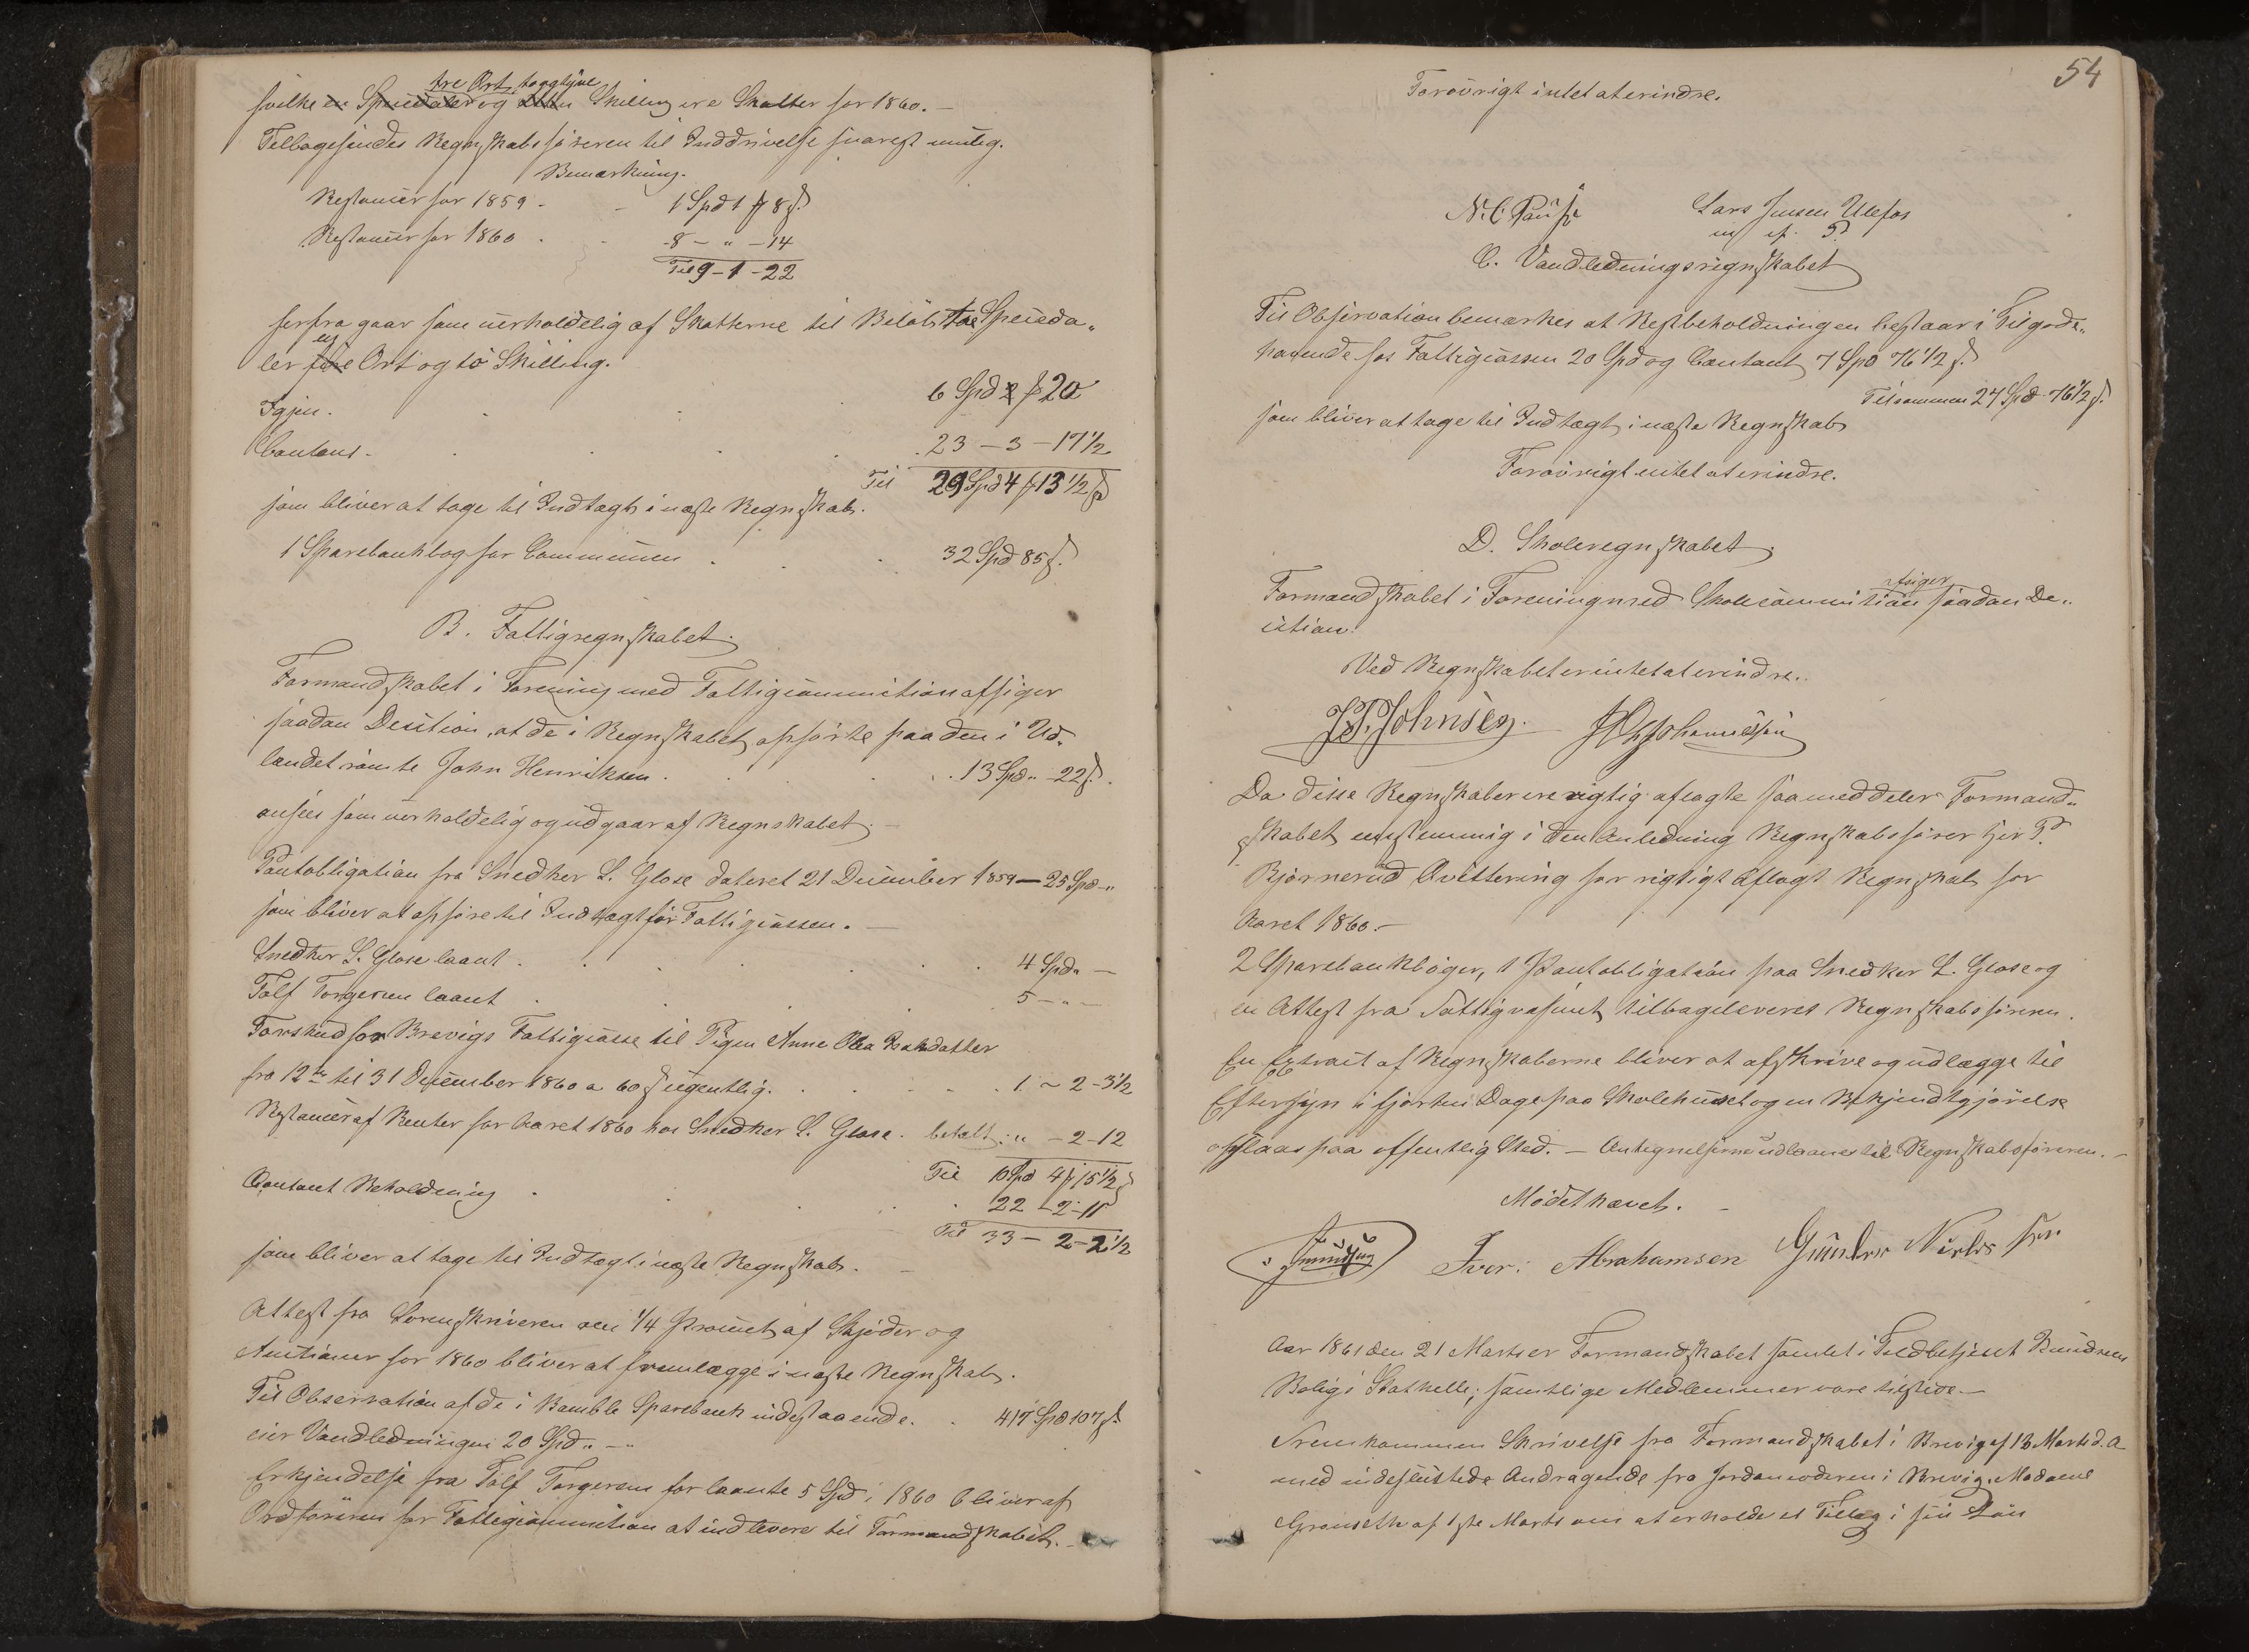 tre Ort toogtyve
hvilke en Speciedaler og Skilling ere Skatter for 1860.—
Tilbagesendes Regnskabsføreren til Inddrivelse snarest mulig.
Bemærkning.
Restancer for 1859 . . 1 Spd 1 ƒ 8 ß
Restancer for 1860 . . 8 – " – 14
Til 9 – 1 – 22
herfra gaar som uerholdelig af Skatterne til Beløb tre Specieda„
en
ler Ort og to Skilling.
6 Spd 2 ƒ 20
Igjen . . .
Contant . . . 23 – 3 – 17 1/2
Til 29 Spd 4 ƒ 13 1/2 ß
som bliver at tage til Indtægt i næste Regnskab.
1 Sparebankbog for Communen . . 32 Spd 85 ß.
B. Fattigregnskabet.
Formandskabet i Forening med Fattigcommission afsiger
saadan Decition, at de i Regnskabet opførte paa den i Ud„
landet rømte John Henriksen . . . 13 Spd " 22 ß.
ansees som uerholdelig og udgaar af Regnskabet.—
Pantobligation fra Snedker L. Glose dateret 21 December 1859 — 25 Spd "
som bliver at opføre til Indtægt for Fattigcassen.—
Snedker L. Glose laant . . . 4 Spd " —
Tolf Torgersen laant . . . 5 – " –
Forskud for Brevigs Fattigcasse til Pigen Anne Olea Isaksdatter
fra 12te til 31 December 1860 a 60 ß ugentlig . . . 1 – 2 – 3 1/2
Restancer af Renter for Aaret 1860 hos Snedker L. Glose . betalt : " – 2 – 12
Til 10 Spd 4 ƒ 15 1/2 ß
Contant Beholdning . . . 22 – 2 – 11
Til 33 – 2 – 2 1/2
som bliver at tage til Indtægt i næste Regnskab.—
Attest fra Sorenskriveren om 1/4 Procent af Skjøder og
Auctioner for 1860 bliver at fremlægge i næste Regnskab.
Til Observation af de i Bamble Sparebank indestaaende . . 417 Spd 107 ß.
eier Vandledningen 20 Spd " – "
Erkjendelse fra Tolf Torgersen for laante 5 Spd i 1860 bliver af
Ordføreren for Fattigcommission at indlevere til Formandskabet.—
54
Forøvrigt intet at erindre.
N. C. Paus Lars Jensen Ulefos
m. p. P.
C. Vandledningsregnskabet
Til Observation bemærkes at Restbeholdningen bestaar i Tilgode„
havende hos Fattigcassen 20 Spd og Contant 7 Spd 76 1/2 ß.
Tilsammen 27 Spd 76 1/2 ß.
som bliver at tage til Indtægt i næste Regnskab
Forøvrigt intet at erindre.
D. Skoleregnskabet.
afsiger
Formandskabet i Forening med Skolecommission saadan De„
cition:
Ved Regnskabet er intet at erindre.
J. P. Johnsen. Johannessen
Da disse Regnskaber ere rigtig aflagte saa meddeler Formand„
skabet eenstemmig i den Anledning Regnskabsfører Hr. P.
Bjørnerud Qvittering for rigtigt aflagt Regnskab for
Aaret 1860.—
2 Sparebankbøger, 1 Pantobligation paa Snedker L. Glose og
en Attest fra Fattigvæsenet tilbageleveres Regnskabsføreren.
En Extract af Regnskaberne bliver at afskrive og udlægge til
Eftersyn i fjorten Dage paa Skolehuset og en Bekjendtgjørelse
opslaaes paa offentlig Sted.— Antegnelserne udlaanes til Regnskabsføreren.—
Mødet hævet.—
Iver: Abrahamsen Gunder Nirlsen
Aar 1861 den 21 Marts er Formandskabet samlet i Toldbetjent Knudsens
Bolig i Stathelle; samtlige Medlemmer vare tilstede.—
Fremkommen Skrivelse fra Formandskabet i Brevig af 13 Marts d. A.
med indesluttede Andragende fra Jordemoderen i Brevig, Madame
Gronseth af 1ste Marts om at erholde et Tillæg i sin Løn